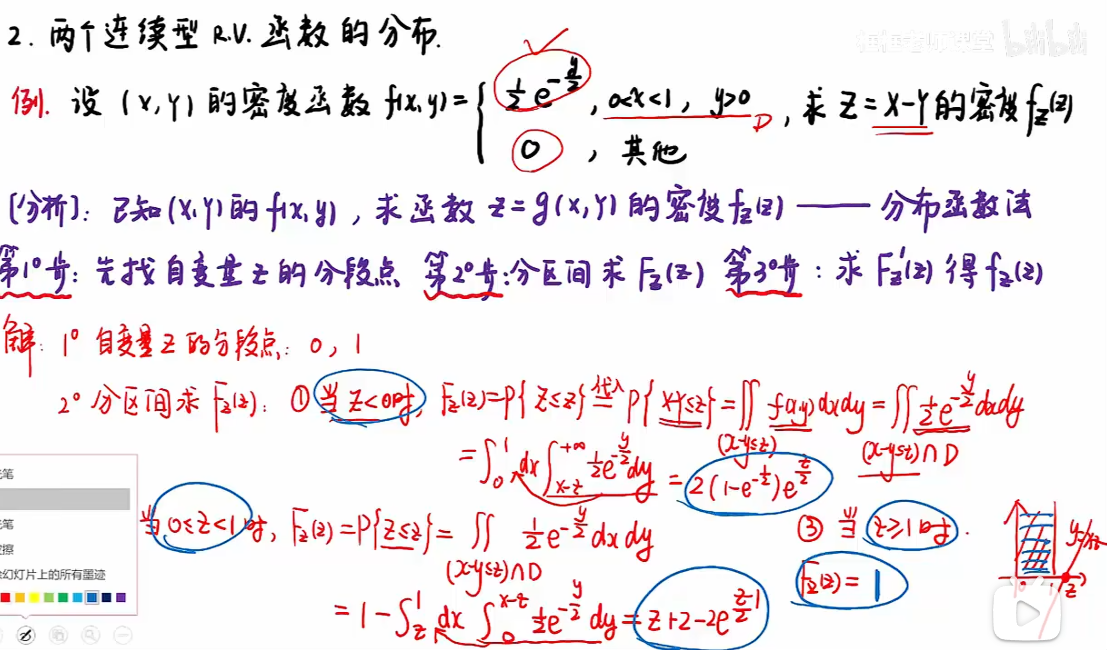 2. 两个连续型 R.V. 函数的分布.
课堂 bilibili
例. 设 (X,Y) 的密度函数 f(x,y)= { ½e^{-y/2}, 0<x<1, y>0 D, 求 Z=X-Y 的密度 f_Z(z)
0, 其他
[分析]: 已知(X,Y)的f(x,y), 求函数 Z=g(X,Y)的密度f_Z(z) —— 分布函数法
第1°步: 先找自变量z的分段点 第2°步:分区间求F_Z(z) 第3°步: 求F_Z'(z)得f_Z(z)
解: 1° 自变量z的分段点: 0, 1
2° 分区间求F_Z(z): ① 当z<0时, F_Z(z)=P{Z≤z} 代入= P{X-Y≤z}=∬ f(x,y)dxdy=∬ ½e^{-y/2}dxdy
(x-y≤z) (x-y≤z)∩D
=∫_0^1 dx∫_{x-z}^{+∞} ½e^{-y/2}dy = 2(1-e^{-1/2})e^{z/2}
当0≤z<1时, F_Z(z)=P{Z≤z}=∬ ½e^{-y/2}dxdy ③ 当z≥1时.
(x-y≤z)∩D F_Z(z)=1
=1-∫_z^1 dx∫_0^{x-z} ½e^{-y/2}dy=z+2-2e^{(z-1)/2}
光笔
光笔
擦
幻灯片上的所有墨迹
z